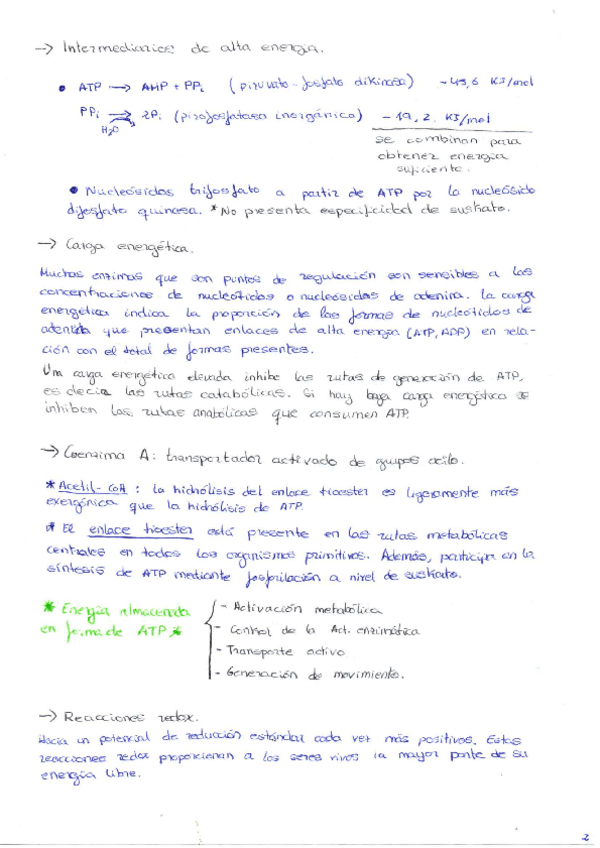 → Intermediarios de alta energía.
• ATP → AMP + PPi (piruvato-fosfato dikinasa) -45,6 KJ/mol
PPi ⇌ 2Pi (pirofosfatasa inorgánica) - 19,2 KJ/mol
H2O
se combinan para
obtener energía
suficiente.
• Nucleósidos trifosfato a partir de ATP por la nucleósido
difosfato quinasa. *No presenta especificidad de sustrato.
→ Carga energética.
Muchas enzimas que son puntos de regulación son sensibles a las
concentraciones de nucleótidos o nucleósidos de adenina. La carga
energética indica la proporción de las formas de nucleótidos de
adenina que presentan enlaces de alta energía (ATP, ADP) en rela-
ción con el total de formas presentes.
Una carga energética elevada inhibe las rutas de generación de ATP,
es decir las rutas catabólicas. Si hay baja carga energética se
inhiben las rutas anabólicas que consumen ATP.
→ Coenzima A: transportador activado de grupos acilo.
* Acetil-CoA : la hidrólisis del enlace tioester es ligeramente más
exergónica que la hidrólisis de ATP.
* El enlace tioester está presente en las rutas metabólicas
centrales en todos los organismos primitivos. Además, participa en la
síntesis de ATP mediante fosforilación a nivel de sustrato.
* Energía almacenada
en forma de ATP *
- Activación metabólica
- Control de la Act. enzimática
- Transporte activo
- Generación de movimiento.
→ Reacciones redox.
Hacia un potencial de reducción estándar cada vez más positivos. Estas
reacciones redox proporcionan a los seres vivos la mayor parte de su
energía libre.
2